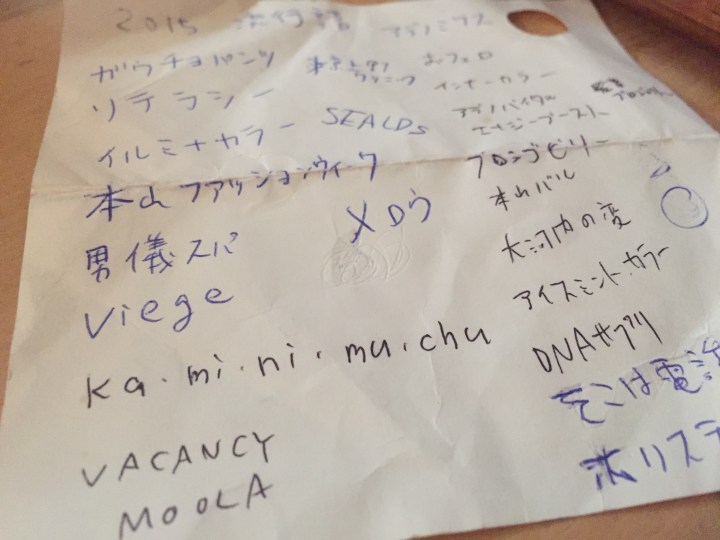 2015 流行語
ガウチョパンツ
リテラシー
イルミナカラー
本山ファッションウィーク
男儀スパ
viege
ka.mi.ni.mu.chu
VACANCY
MOOLA
SEALDs
メロウ
おフェロ
インナーカラー
エイジーブースト
ブロンプビリー
本山バル
大河内の変
アイスミントカラー
DNAサプリ
そこは電話
ホリステ